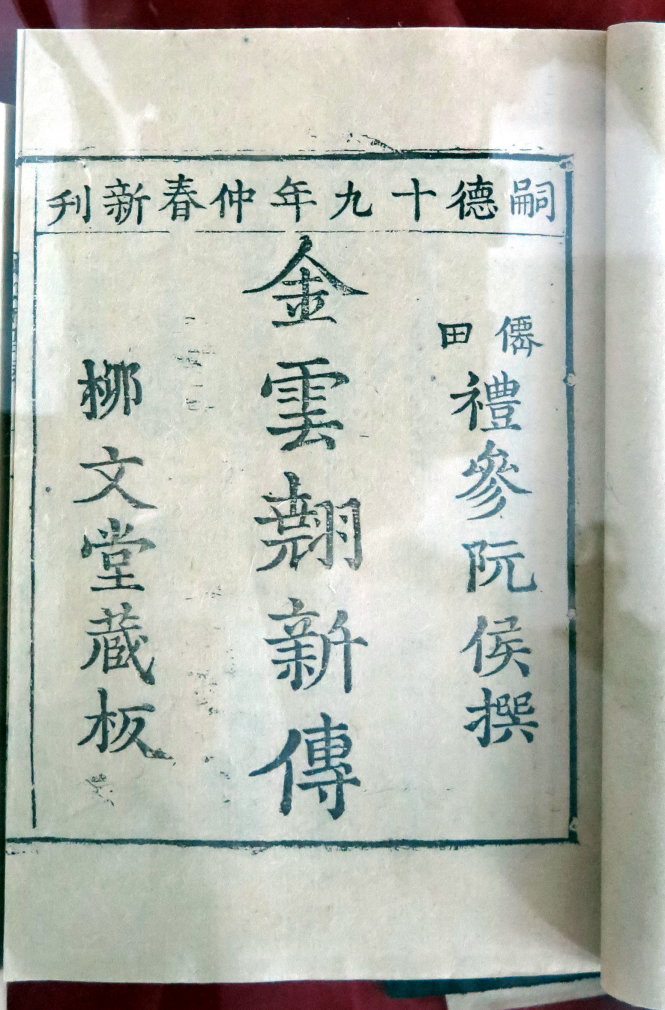 嗣德十九年仲春新刊
僊田禮參阮侯撰
金雲翹新傳
柳文堂蔵板